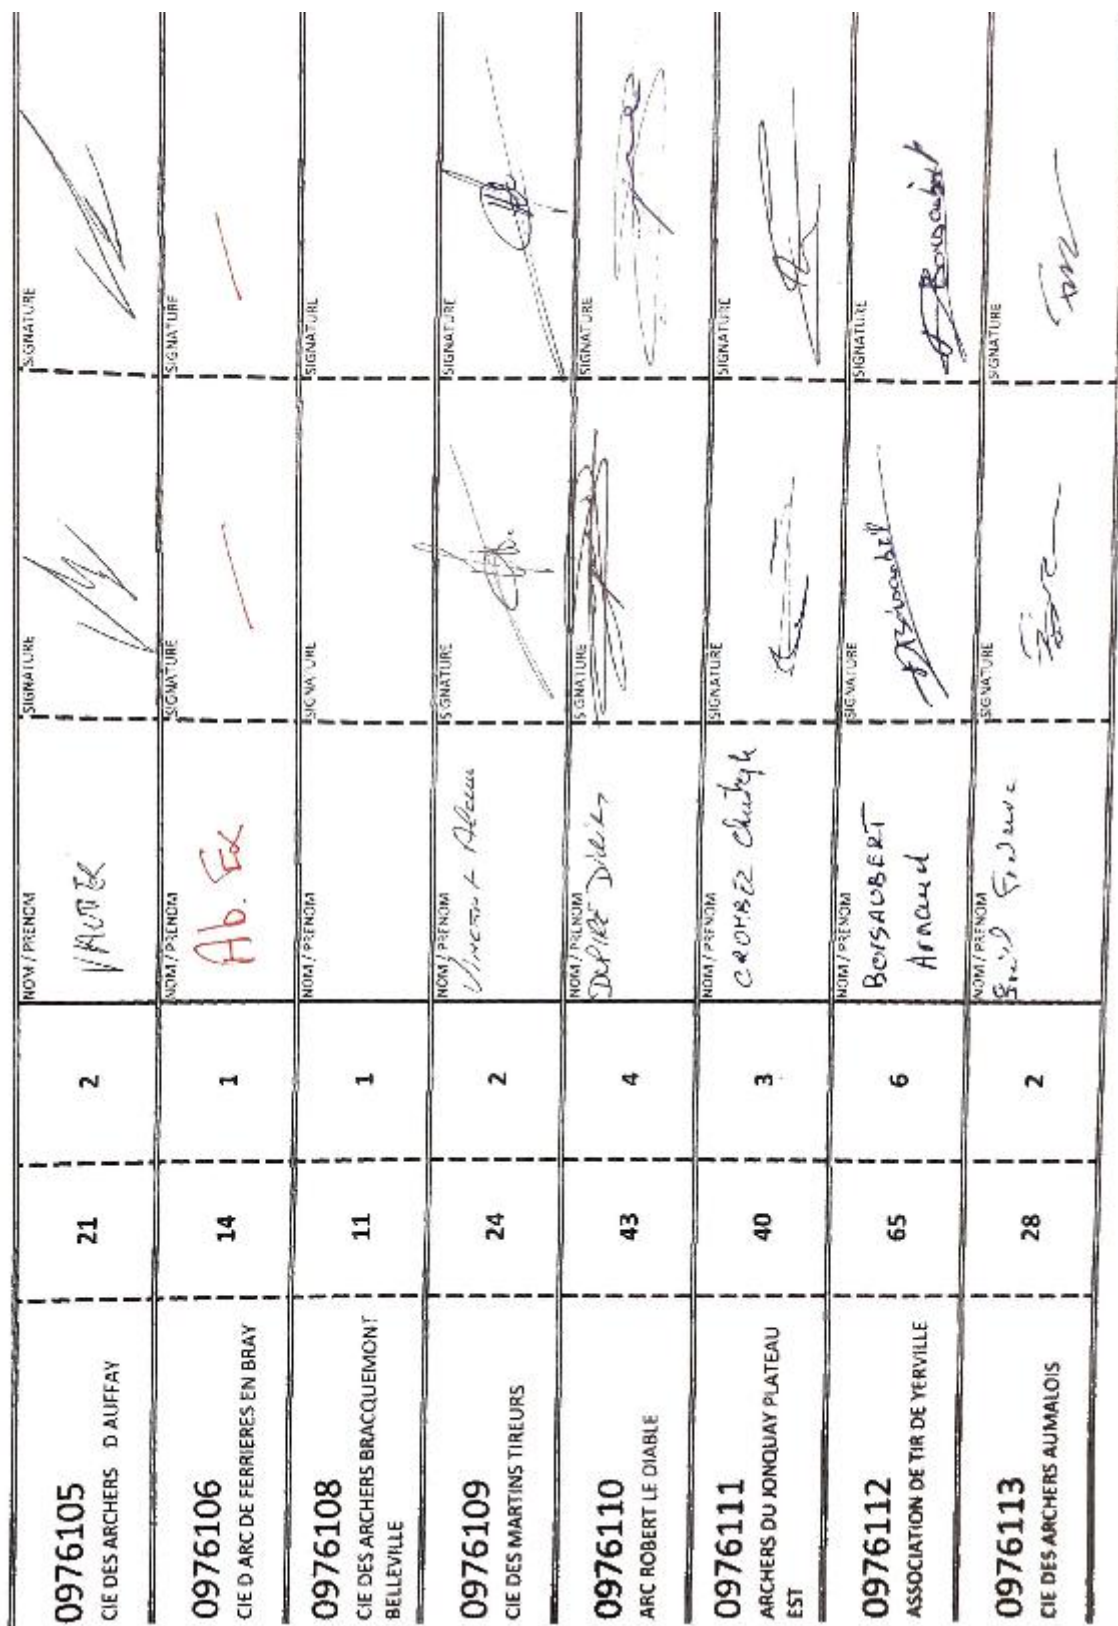 0976105
CIE DES ARCHERS D AUFFAY
21
2
NOM / PRENOM
VAUTER
SIGNATURE
SIGNATURE
0976106
CIE D ARC DE FERRIERES EN BRAY
14
1
NOM / PRENOM
Ab. Ex
SIGNATURE
SIGNATURE
0976108
CIE DES ARCHERS BRACQUEMONT
BELLEVILLE
11
1
NOM / PRENOM
SIGNATURE
SIGNATURE
0976109
CIE DES MARTINS TIREURS
24
2
NOM / PRENOM
SIGNATURE
SIGNATURE
0976110
ARC ROBERT LE DIABLE
43
4
NOM / PRENOM
DUPIRÉ Didier
SIGNATURE
SIGNATURE
0976111
ARCHERS DU JONQUAY PLATEAU
EST
40
3
NOM / PRENOM
CROMBEZ
SIGNATURE
SIGNATURE
0976112
ASSOCIATION DE TIR DE YERVILLE
65
6
NOM / PRENOM
BOISAUBERT
Arnaud
SIGNATURE
Boisaubert
SIGNATURE
Boisaubert
0976113
CIE DES ARCHERS AUMALOIS
28
2
NOM / PRENOM
SIGNATURE
SIGNATURE